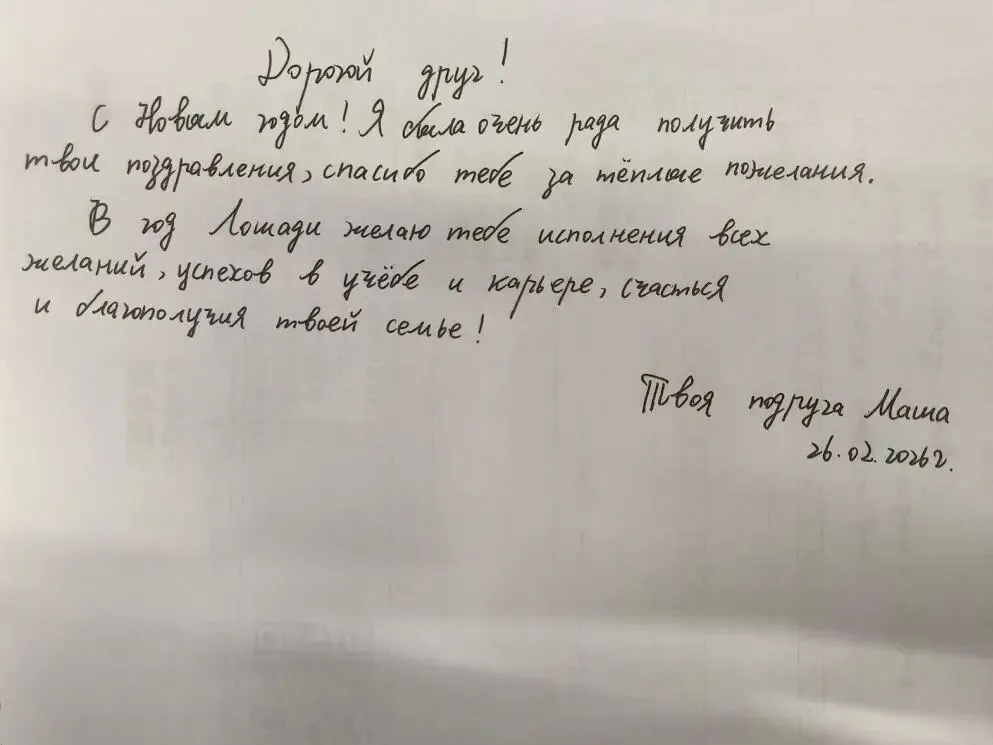 Дорогой друг!
С Новым годом! Я была очень рада получить
твои поздравления, спасибо тебе за тёплые пожелания.
В год Лошади желаю тебе исполнения всех
желаний, успехов в учёбе и карьере, счастья
и благополучия твоей семье!
Твоя подруга Маша
26.02.2026г.